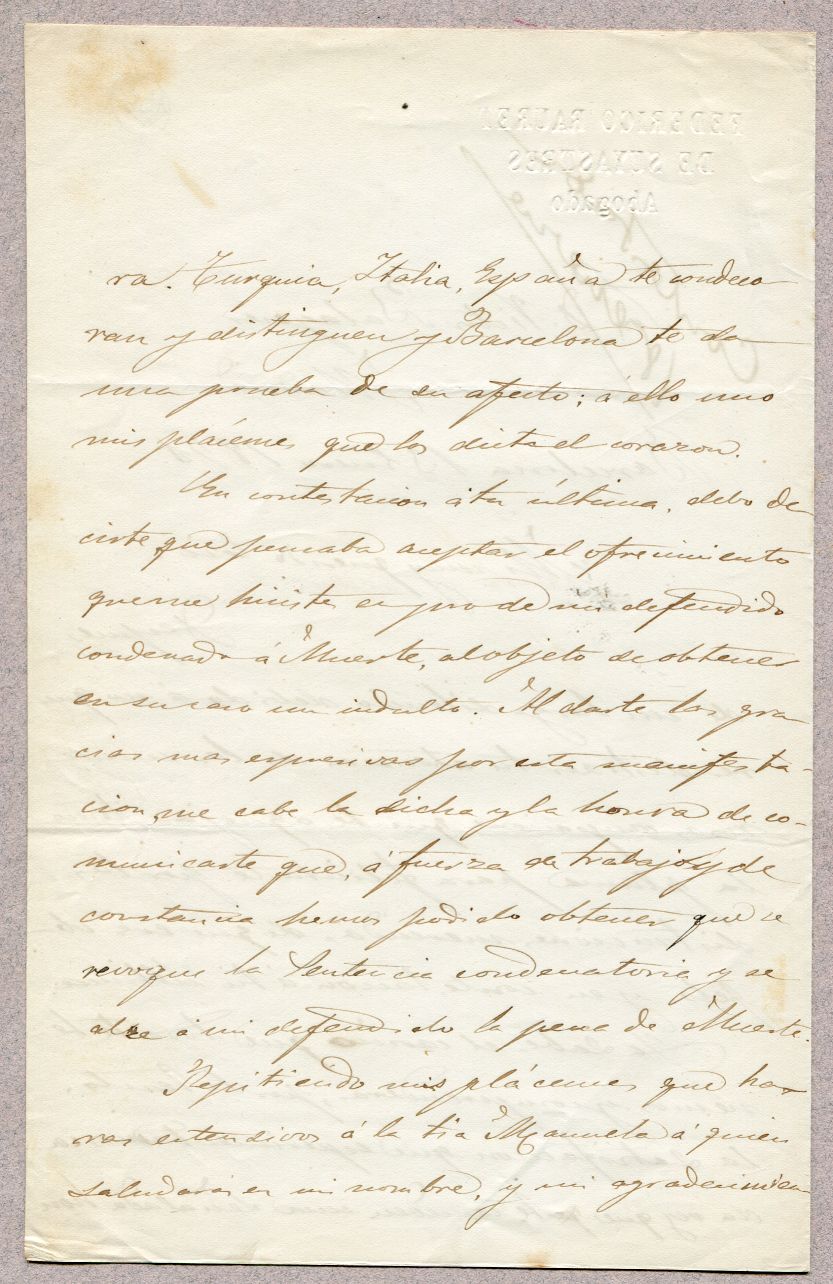 FEDERICO BAURET
DE SUYASTRES
Abogado
ra. Turquia, Italia, España te condeco
ran y distinguen y Barcelona te da
una prueba de su afecto; á ello uno
mis plácemes que los dicta el corazon.
En contestacion á tu última, debo de
cirte que pensaba aceptar el ofrecimiento
que me hiciste en pro de mi defendido
condenado á Muerte, al objeto de obtener
en su caso un indulto. Al darte las gra
cias mas espresivas por esta manifesta-
cion, me cabe la dicha y la honra de co-
municarte que, á fuerza de trabajo y de
constancia hemos podido obtener que se
revoque la Sentencia condenatoria y se
alze á mi defendido la pena de Muerte.
Repitiendo mis plácemes que ha-
ras estensivos á la tia Manuela á quien
saludarás en mi nombre, y mi agradecimien